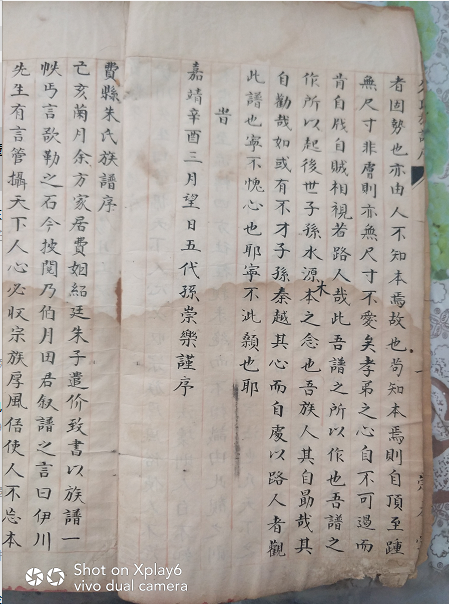 者因勢也亦由人不知本焉故也苟知本焉則自頂至踵
無尺寸非膚則亦無尺寸不愛矣孝弟之心自不可遏而
肯自戕自賊相視若路人哉此吾譜之所以作也吾譜之
作所以起後世子孫水源木本之念也吾族人其自勗哉其
自勸哉如或有不才子孫秦越其心而自處以路人者觀
此譜也寧不愧心也耶寧不泚顙也耶
旹
嘉靖辛酉三月望日五代孫崇樂謹序
費縣朱氏族譜序
己亥菊月余方家居費姻紹廷朱子遣价致書以族譜一
帙丐言欲勒之石今披閱乃伯月田君叙譜之言曰伊川
先生有言管攝天下人心必収宗族厚風俗使人不忘本
Shot on Xplay6
vivo dual camera